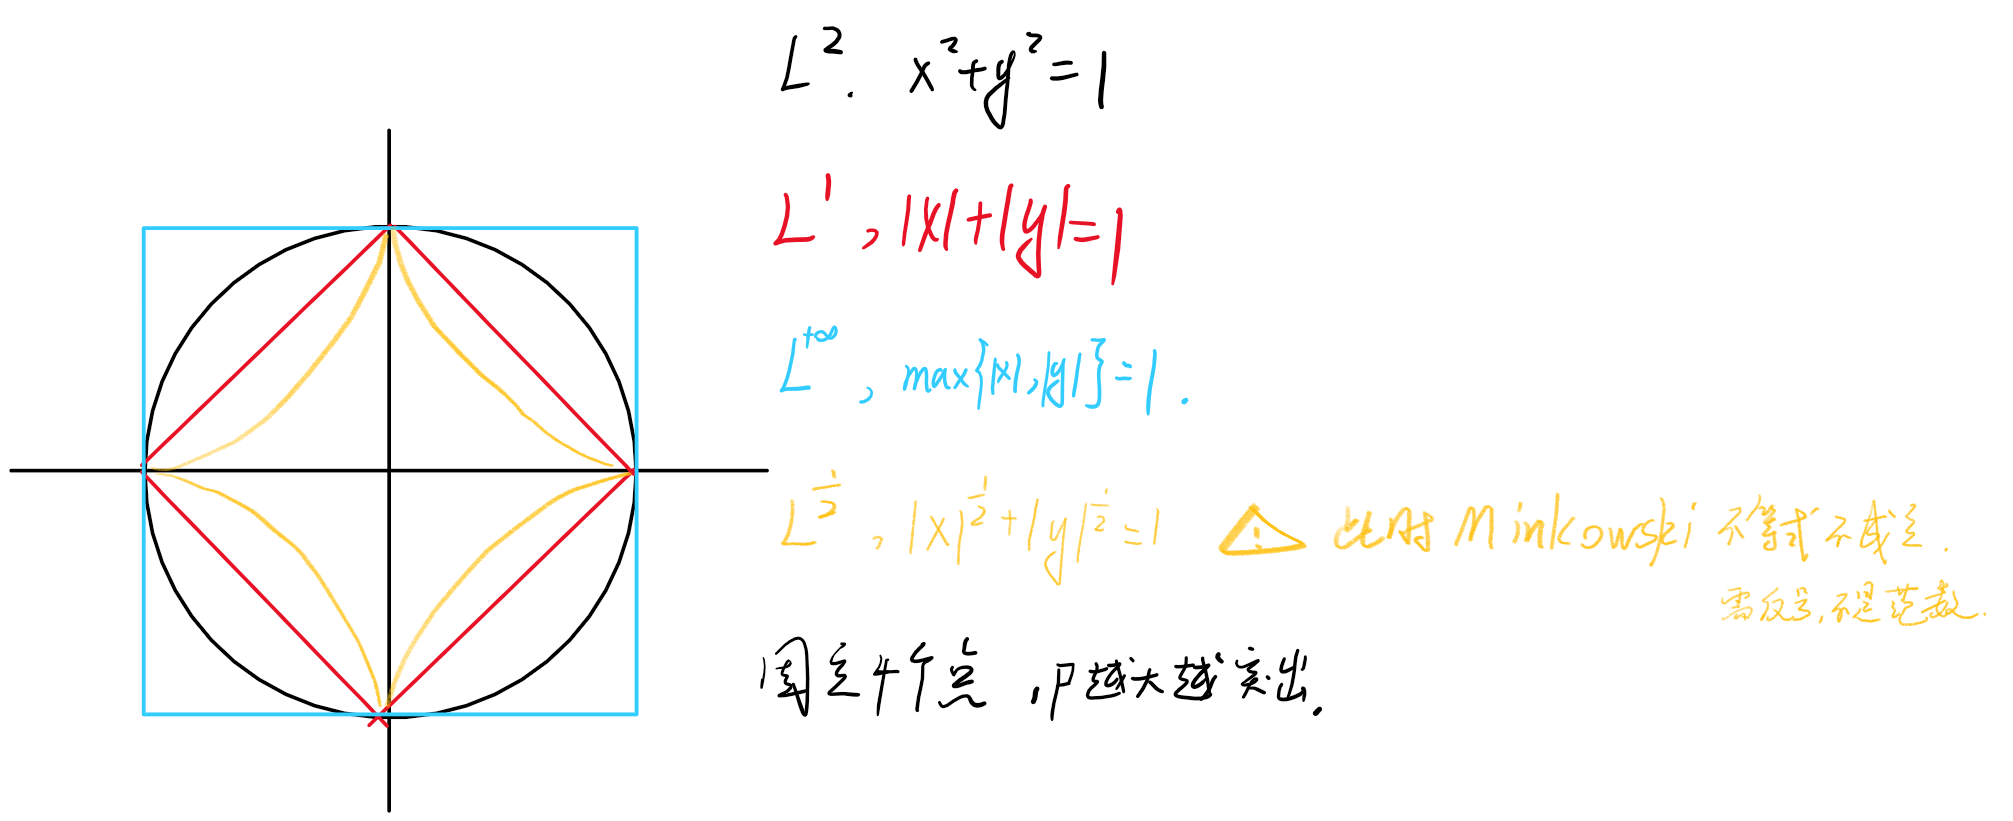 L². x²+y²=1
L¹, |x|+|y|=1
L^{+∞}, max{|x|,|y|}=1.
L^{1/2}, |x|^{1/2}+|y|^{1/2}=1 ⚠ 此时 Minkowski 不等式不成立.
需反号,不是范数.
固定4个点,p越大越突出.